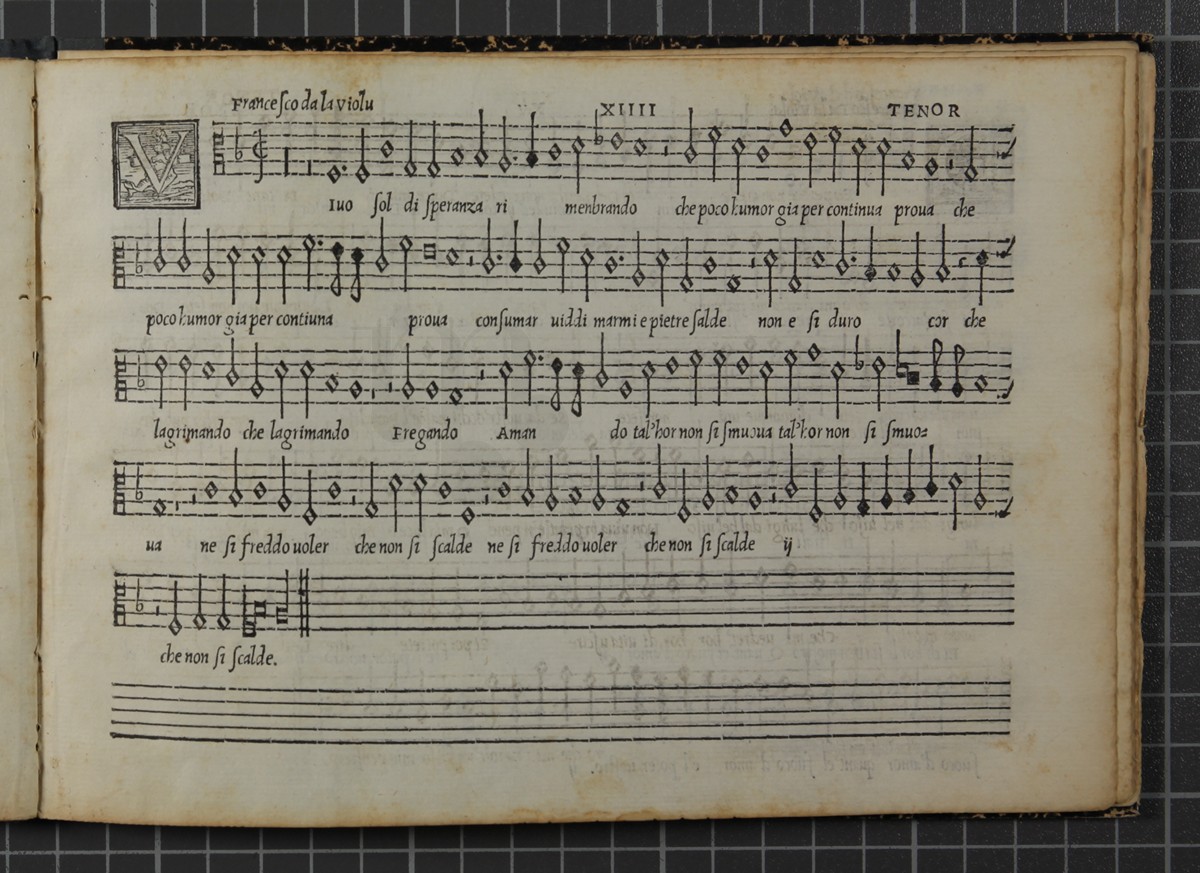 Francesco da la violu XIIII TENOR
VIuo sol di speranza ri menbrando che poco humor gia per continua proua che
poco humor gia per contiuna proua consumar uiddi marmi e pietre salde non e si duro cor che
lagrimando che lagrimando Fregando Aman do tal'hor non si smuoua tal'hor non si smuo=
ua ne si freddo uoler che non si scalde ne si freddo uoler che non si scalde ij
che non si scalde.